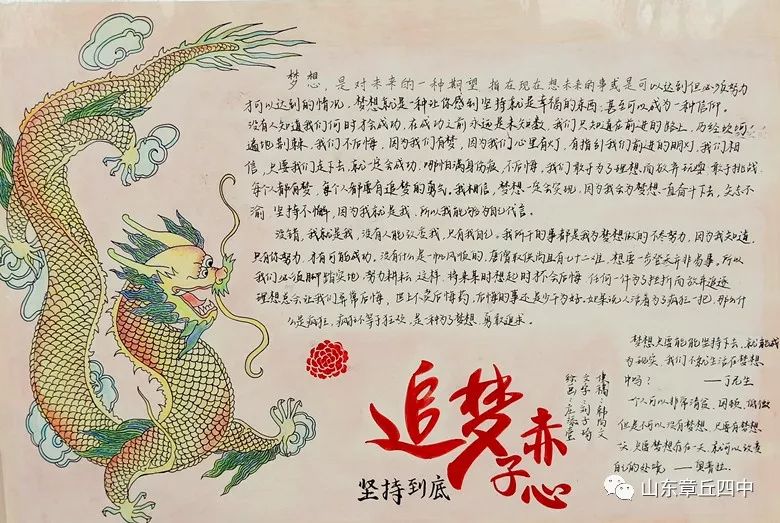 梦想，是对未来的一种期望，指在现在想未来的事或是可以达到但必须努力
才可以达到的情况，梦想就是一种让你感到坚持就是幸福的东西，甚至可以成为一种信仰。
没有人知道我们何时才会成功，在成功之前永远是未知数，我们只知道在前进的路上，历经坎坷
遍地荆棘，我们不后悔，因为我们有梦，因为我们心里有灯，有指引我们前进的明灯，我们相
信，只要我们走下去，就一定会成功，哪怕满身伤痕，不后悔，我们敢于为了理想，而放弃玩乐，敢于挑战。
每个人都有梦，每个人都要有追梦的勇气。我相信，梦想一定会实现，因为我会为梦想一直奋斗下去，矢志不
渝，坚持不懈，因为我就是我，所以我能够为自己代言。
没错，我就是我，没有人能改变我，只有我自己。我所干的事都是我为梦想做的不停努力，因为我知道，
只有你努力，才有可能成功，没有什么是一帆风顺的，唐僧取经尚且有九九八十一难，想要一步登天并非易事，所以
我们必须脚踏实地，努力耕耘，这样，将来某时想起时才不会后悔，任何一件为了挫折而放弃追逐
理想总会让我们异常后悔，但世上不卖后悔药，后悔的事还是少干为好，如果说人活着为了疯狂一把，那么什
么是疯狂，疯狂不等于狂欢，是一种为了梦想，勇敢追求。
梦想只要能坚持下去，就能成
为现实，我们不就生活在梦想
中吗？ ——丁尼生
一个人可以非常清贫、困顿、低微
但是不可以没有梦想，只要有梦想
一天，只要梦想存在一天，就可以改变
自己的处境 ——奥普拉
供稿：韩尚文
文字：刘子
绘图：庄
追梦赤子心
坚持到底
山东章丘四中